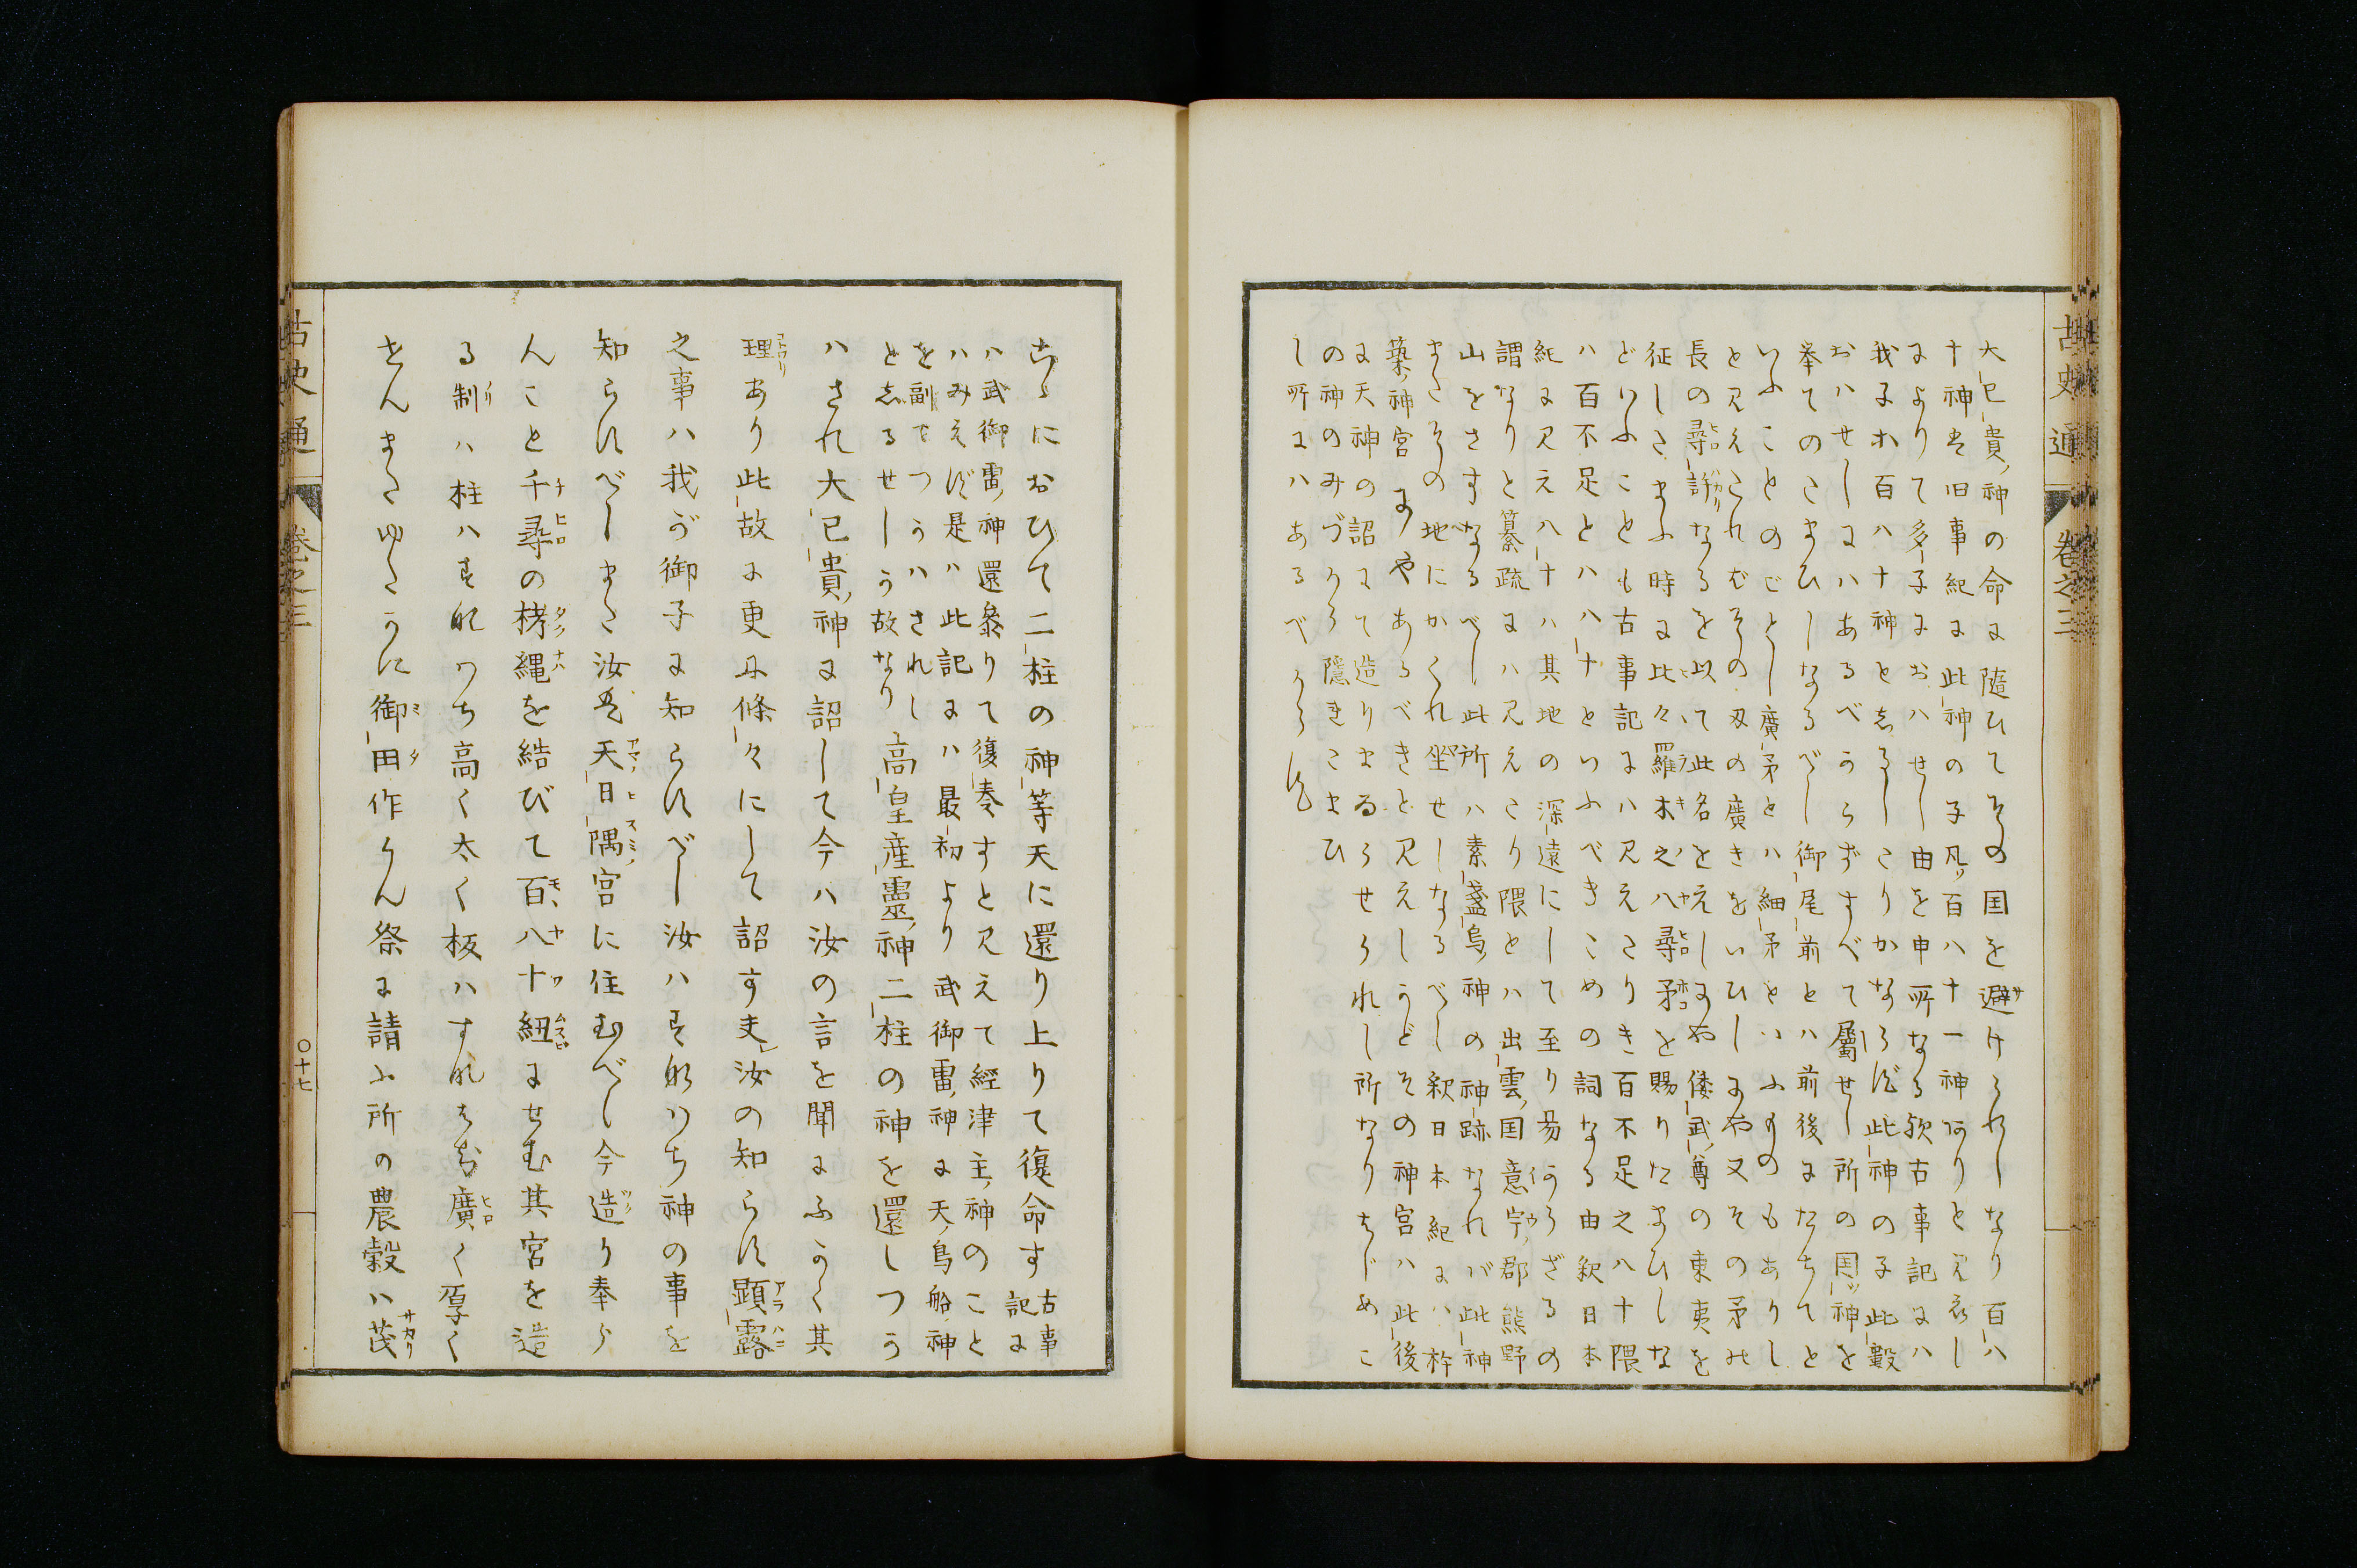 古史通
卷之三
大己貴神の命に随ひてその国を避けられしなり百八
十神は旧事紀に此神の子凡百八十一神ありと見えし
によりて多子におハせし由を申所なる歟古事記にハ
我子等百八十神としるしたりかならず此神の子此数
おハせしにハあるべからずすべて属せし所の国ツ神を
挙てのたまひしなるべし御尾前とハ前後にたちてと
いふことのごとし廣矛とハ細矛といふものもありし
と見えたれバその刃の廣きをいひしにや又その矛の
長の尋許なるを以て此名をえしにや倭武尊の東夷を
征したまふ時に比々羅木之八尋矛を賜りたまひしな
どいふことも古事記にハ見えたりき百不足之八十隈
ハ百不足とハ八十といふべきこめの詞なる由釈日本
紀に見え八十ハ其地の深遠にして至り易からざるの
謂なりと纂疏にハ見えたり隈とハ出雲国意宇郡熊野
山をさすなるべし此所ハ素盞烏神の神跡なれバ此神
またその地にかくれ坐せしなるべし釈日本紀にハ杵
築神宮にやあるべきと見えしかどその神宮ハ此後
に天神の詔にて造りまゐらせられし所なりはじめこ
の神のみづから隠れたまひ
し所にハあるべからず
こゝにおひて二柱の神等天に還り上りて復命す古事記に
ハ武御雷神還参りて復奏すと見えて経津主神のこと
ハみえず是ハ此記にハ最初より武御雷神に天鳥船神
を副てつかハされし
としるせしか故なり高皇産霊神二柱の神を還しつか
ハされ大己貴神に詔して今ハ汝の言を聞にふかく其
理あり此故に更に條々にして詔す夫汝の知らす顕露
之事ハ我が御子に知らすべし汝ハすなわち神の事を
知らすべしまた汝は天日隅宮に住むべし今造り奉ら
んこと千尋の栲縄を結びて百八十紐にせむ其宮を造
る制ハ柱ハすなわち高く太く板ハすなはち廣く厚く
せんまたゆたかに御田作りん祭に請ふ所の農穀ハ茂
古史通
卷之三
〇十七